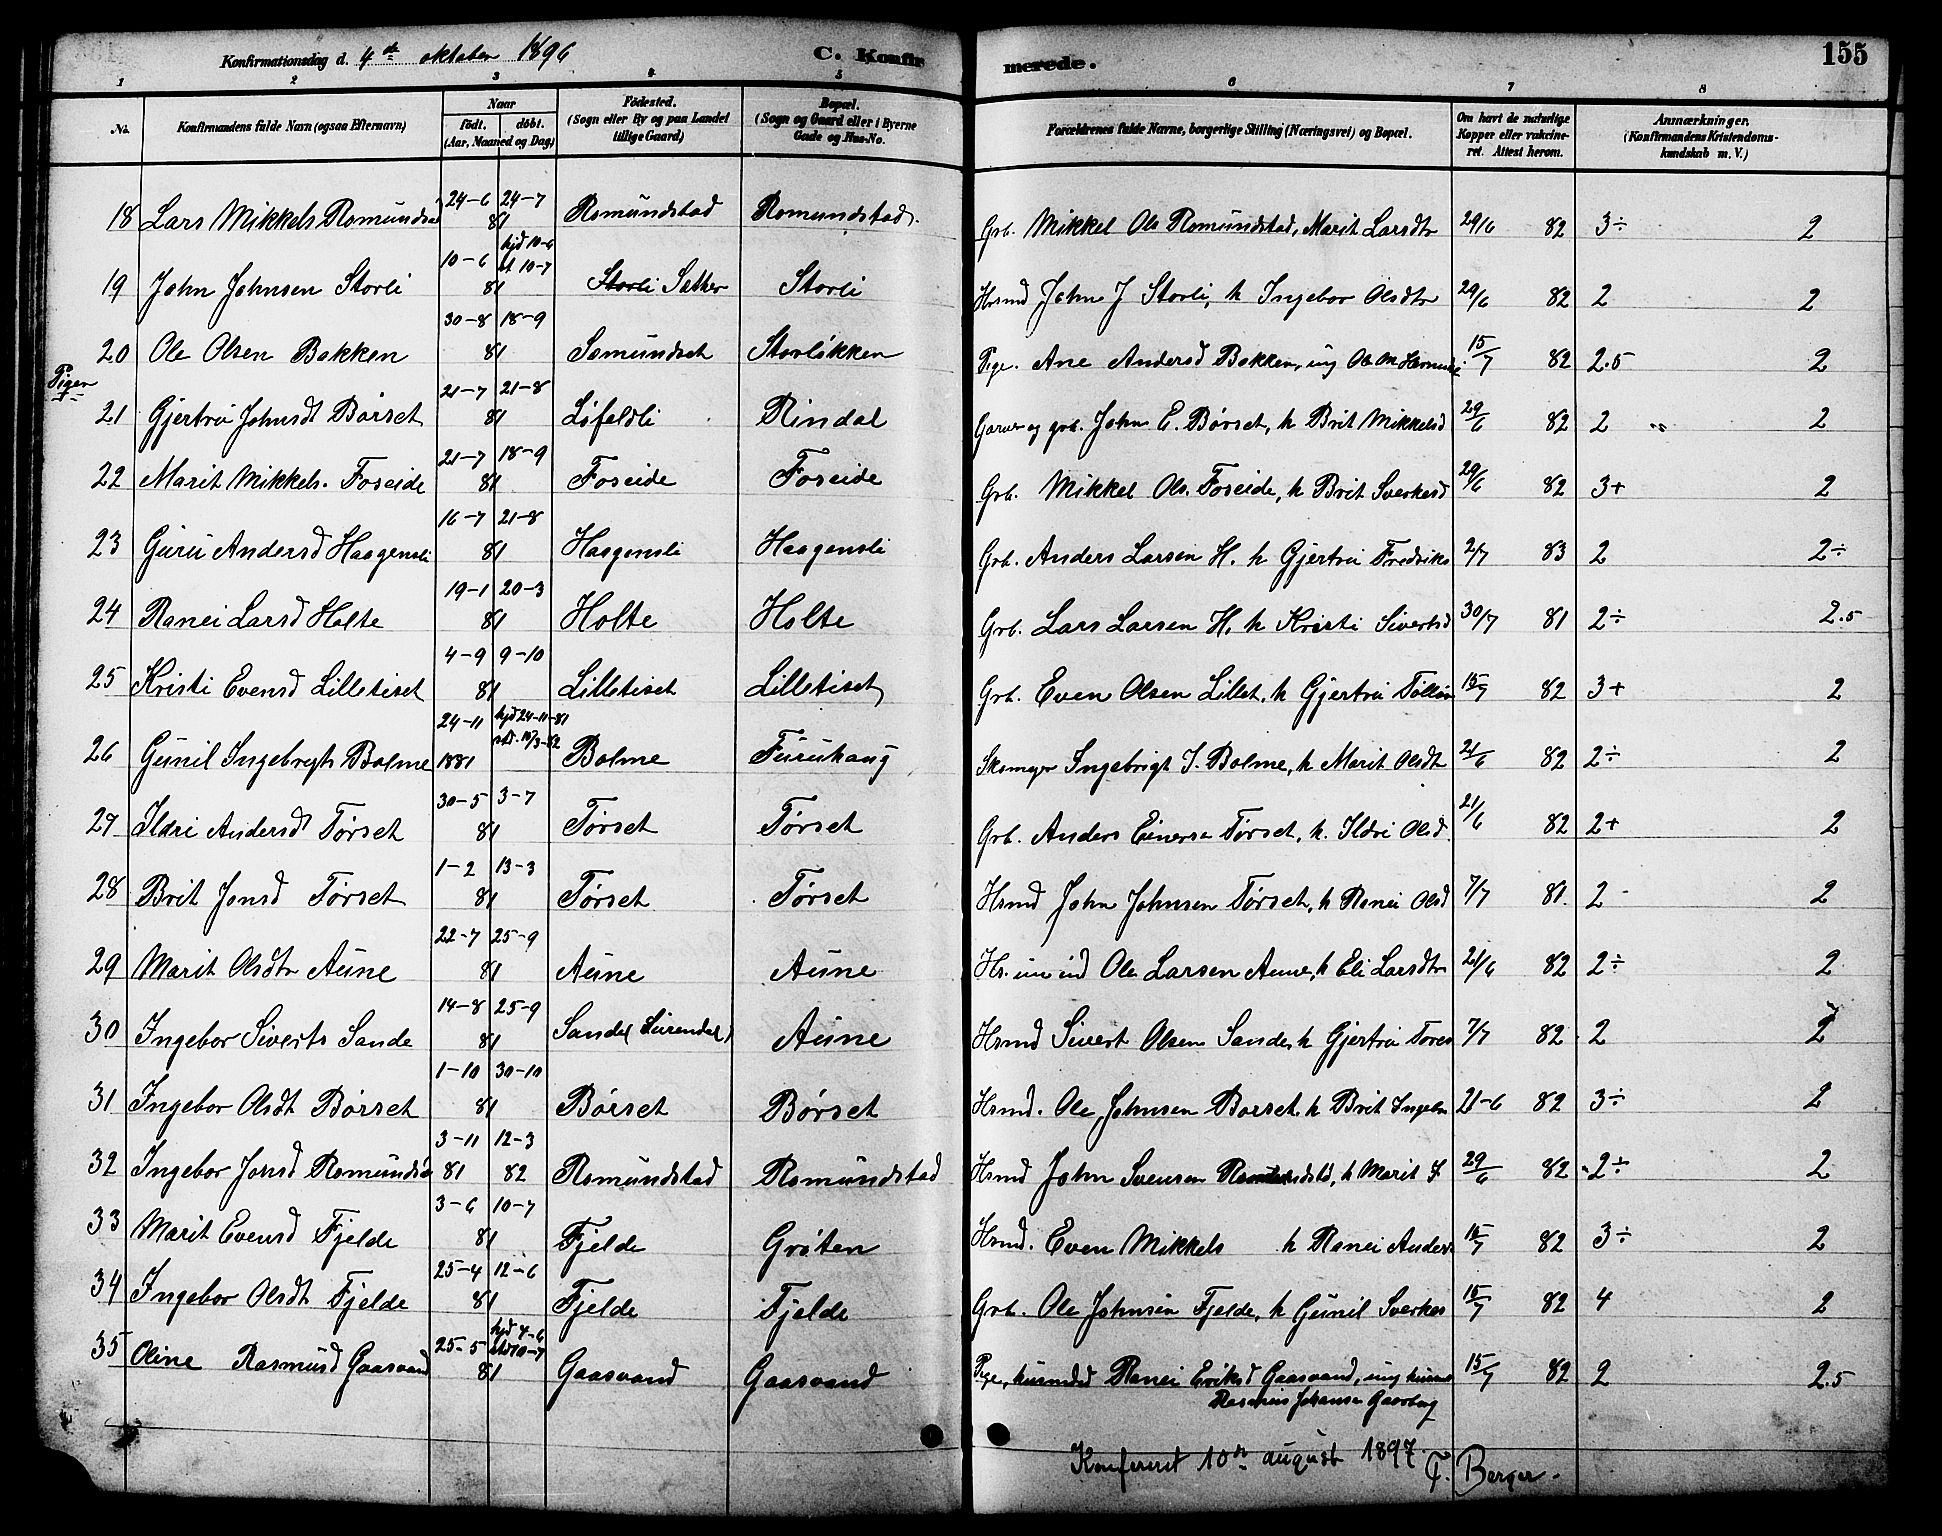 Konfirmationsdag d. 4de oktober 1896 C. Konfirmerede. 155
1 2 3 4 5 6 7 8
No. Konfirmandens fulde Navn (ogsaa Efternavn) Naar født. døbt. (Aar, Maaned og Dag) Fødested. (Sogn eller By og paa Landet tillige Gaard) Bopæl. (Sogn og Gaard eller i Byerne Gade og Hus-No. Forældrenes fulde Navne, borgerlige Stilling (Næringsvei) og Bopæl. Om havt de naturlige Kopper eller vakcineret. Attest herom. Anmærkninger, (Konfirmandens Kristendomskundskab m. V.)
18 Lars Mikkels Romundstad 24-6 81 24-7 Romundstad Romundstad. Grb. Mikkel Ols Romundstad, Marit Larsdtr 29/6 82 3÷ 2
19 John Johnsen Storli 10-6 81 hjd 10-6 st 10-7 Storli Sæther Storli Hsmd John J Storli, h Ingebor Olsdtr 29/6 82 2 2
20 Ole Olsen Bakken 30-8 81 18-9 Romundset Storløkken Pige. Ane Andersd Bakken, ug 15/7 82 2.5 2
Piger
21 Gjertru Johnsdt Børset 21-7 81 21-8 Løfeldli Rindal Garver og grb. John E. Børset, h Brit Mikkelsd 29/6 82 2 " 2
22 Marit Mikkels. Foseide 21-7 81 18-9 Foseide Foseide Grb. Mikkel Ols. Foseide, h Brit Sverkesd 29/6 82 3+ 2
23 Guru Andersd Haagensli 16-7 81 21-8 Haagensli Haagensli Grb. Anders Larsen H. h Gjertru Fredriks 2/7 83 2 2÷
24 Ranei Larsd Holte 19-1 81 20-3 Holte Holte Grb. Lars Larsen H. h Kristi Sivertsd 30/7 81 2÷ 2.5
25 Kristi Evensd Lilletiset 4-9 81 9-10 Lilletiset Lilletiset Grb. Even Olsen Lillet, h Gjertru 15/7 82 3+ 2
26 Gunil Ingebrigts Bolme 24-11 1881 hjd 24-11-81 st. 10/3-82 Bolme Furuhaug Skomager Ingebrigt I. Bolme, h Marit Olsdt 21/6 82 2÷ 2
27 Ildri Andersdt Tørset 30-5 81 3-7 Tørset Tørset Grb. Anders Einersen Tørset, h. Ildri Olsd. 21/6 82 2+ 2
28 Brit Jonsd Tørset 1-2 81 13-3 Tørset Tørset Hsmd John Johnsen Tørset, h Ranei Olsd 7/7 81. 2 - 2
29 Marit Olsdtr Aune 22-7 81 25-9 Aune Aune Ole Larsen Aune, h Eli Larsdtr 21/6 82 2÷ 2
30 Ingebor Siverts Sande 14-8 81 25-9 Sande (Surendal) Aune Hsmd Sivert Olsen Sande h Gjertru Tores 7/7 82 2 2
31 Ingebor Olsdt Børset 1-10 81 30-10 Børset Børset Hsmd. Ole Johnsen Børset h Brit Ingebr 21-6 82 3÷ 2
32 Ingebor Jonsd Romundsta 3-11 81 12-3 82 Romundstad Romundstad Hsmd John Svensen Romundstad, h Marit J 29/6 82 2÷ 2
33 Marit Evensd Fjelde 3-6 81 10-7 Fjelde Grøten Hsmd. Even Mikkels h Ranei Anders 15/7 82 3÷ 2
34 Ingebor Olsdt Fjelde 25-4 81 12-6 Fjelde Fjelde Grb. Ole Johnsen Fjelde, h Gunil Sverkes 15/7 82 4 2
35 Oline Rasmusd Gaasvand 25-5 81 hjd 4-6 stad 10-7 Gaasvand Gaasvand Pige, Ranei Eriksd Gaasvand, ug 15/7 82 2 2.5
Rasmus Johansen
Konfereret 10de august 1897. T. Berger.